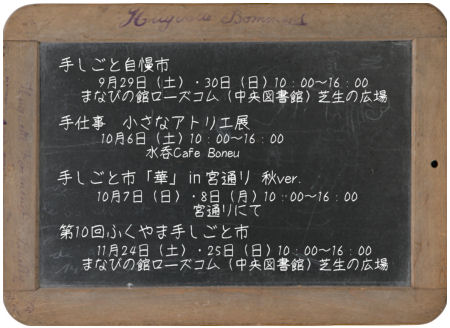 手しごと自慢市
9月29日（土）・30日（日）10：00～16：00
まなびの館ローズコム（中央図書館）芝生の広場
手仕事　小さなアトリエ展
10月6日（土）10：00～16：00
水呑Cafe Boneu
手しごと市「華」in宮通り 秋ver.
10月7日（日）・8日（月）10：00～16：00
宮通りにて
第10回ふくやま手しごと市
11月24日（土）・25日（日）10：00～16：00
まなびの館ローズコム（中央図書館）芝生の広場